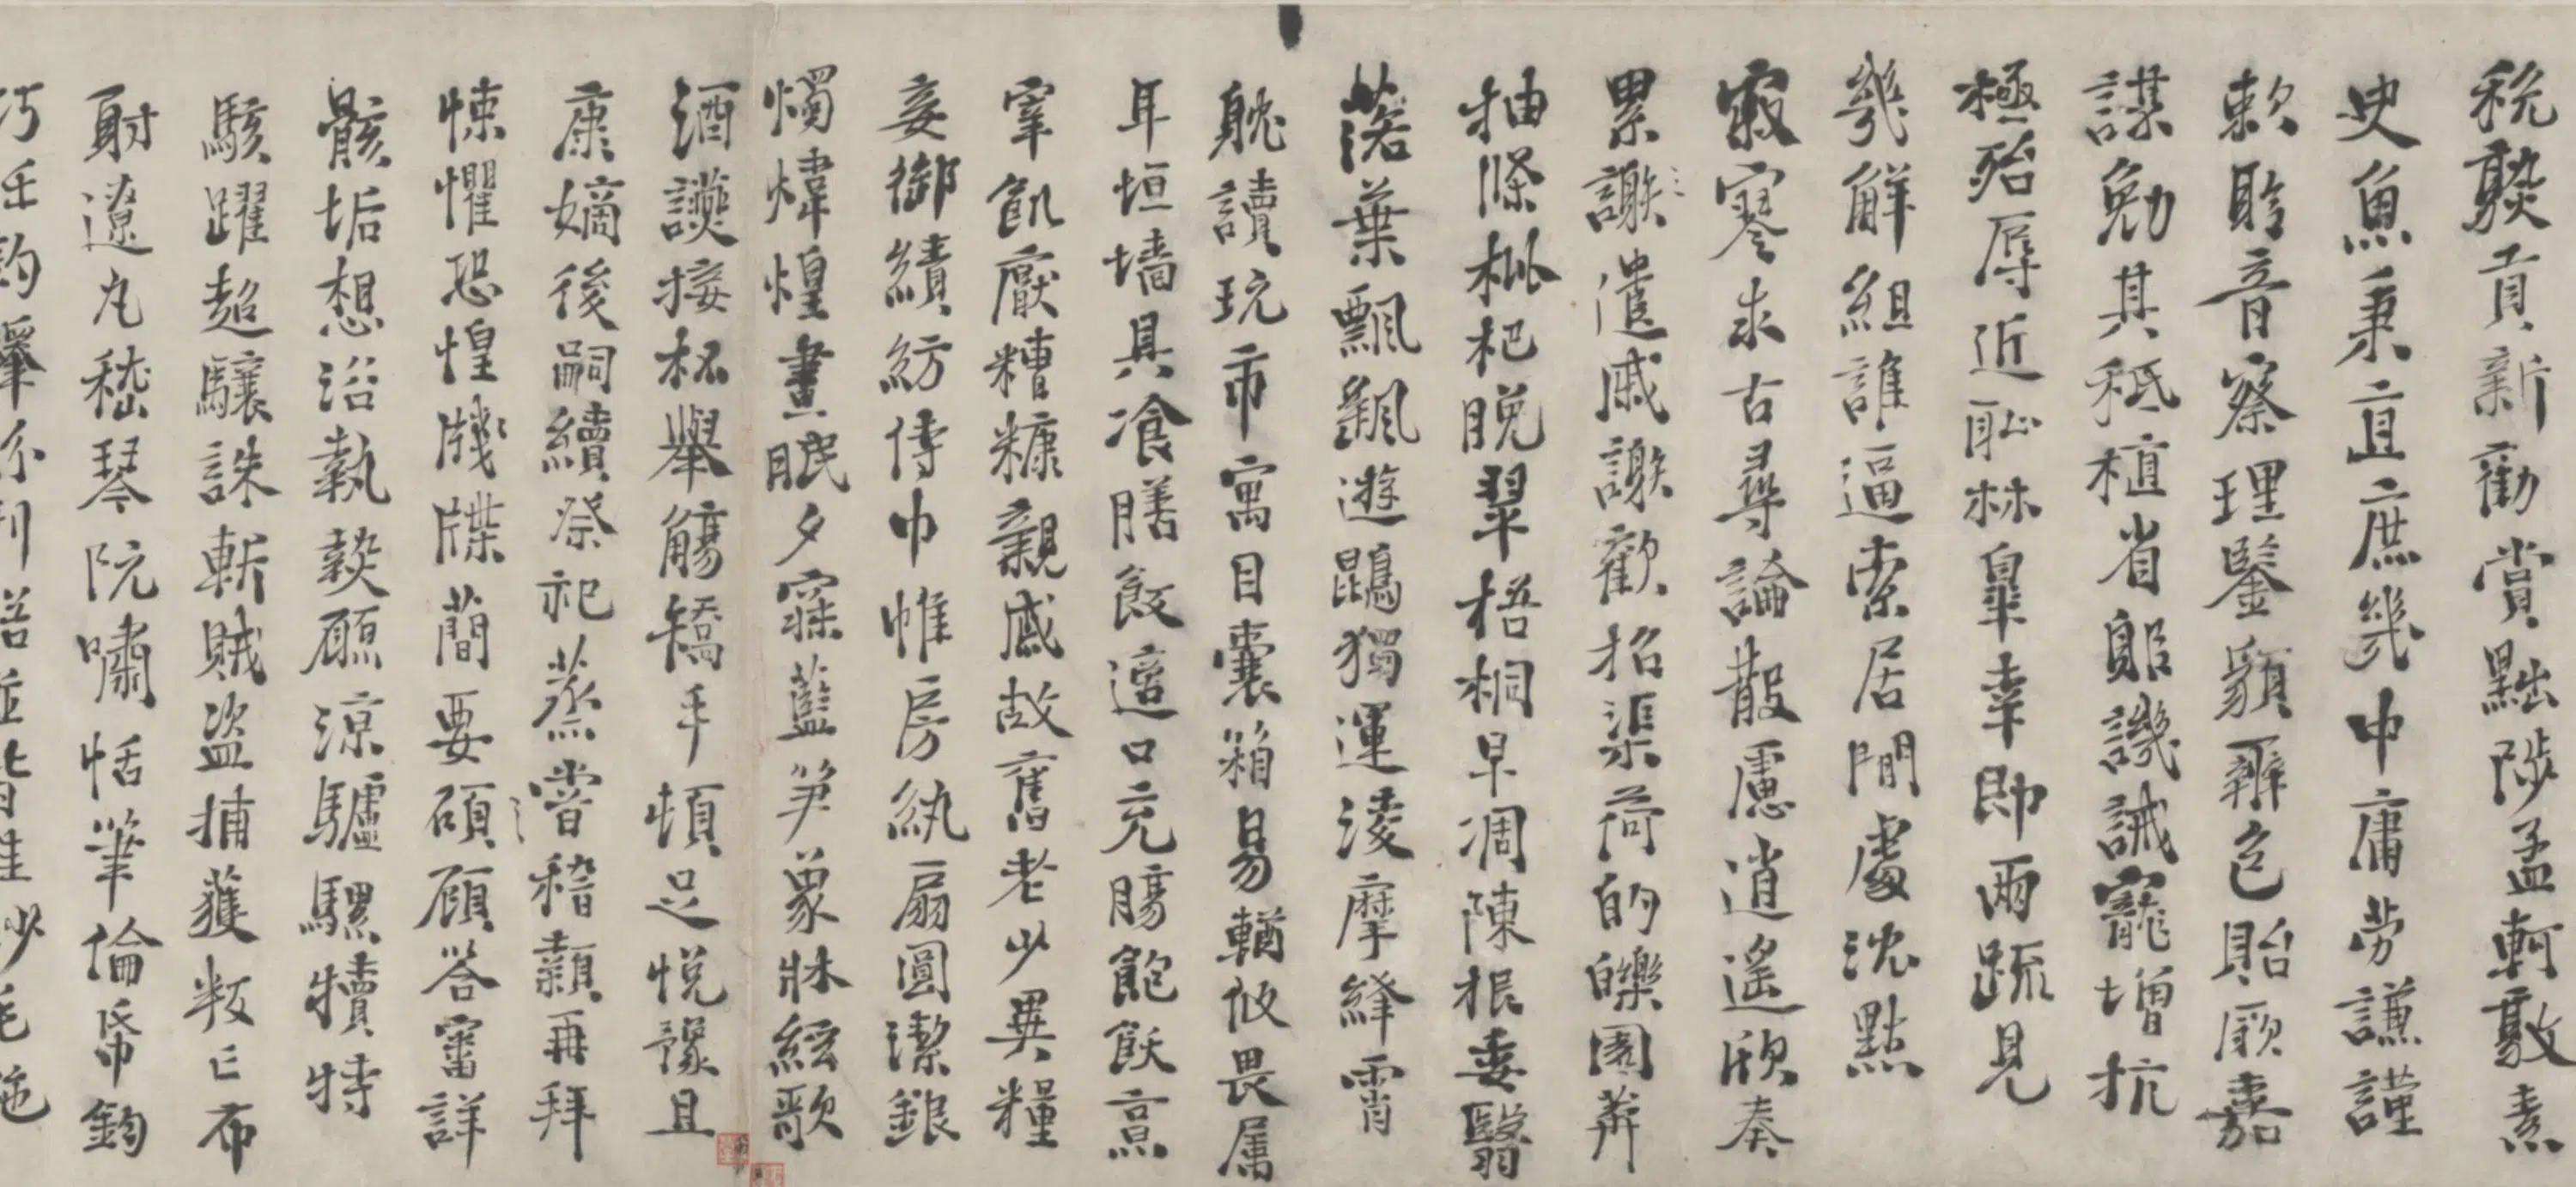 稅熟貢新勸賞黜陟孟軻敦素
史魚秉直庶幾中庸勞謙謹
敕聆音察理鑒貌辨色貽厥嘉
謀勉其秪植省躬譏誡寵增抗
極殆辱近恥林皋幸即兩疏見
幾解組誰逼索居閒處沈默
寂寥求古尋論散慮逍遙欣奏
累謝遣戚謝歡招渠荷的皪園莽
抽條枇杷晚翠梧桐早凋陳根委翳
落葉飄颻遊鵾獨運淩摩絳霄
躭讀玩市寓目囊箱易輶攸畏属
耳垣墻具飡膳飯適口充腸飽飫烹
宰飢厭糟糠親戚故舊老少異糧
妾御績紡侍巾帷房紈扇圓潔銀
燭煒煌晝眠夕寐藍笋象牀絃歌
酒讌接杯舉觴矯手頓足悅豫且
康嫡後嗣續祭祀蒸嘗稽顙再拜
悚懼恐惶牋牒簡要碩顧答審詳
骸垢想浴執熱願涼驢騾犢特
駭躍超驤誅斬賊盜捕獲叛亡布
射遼丸嵇琴阮嘯恬筆倫帋鈞